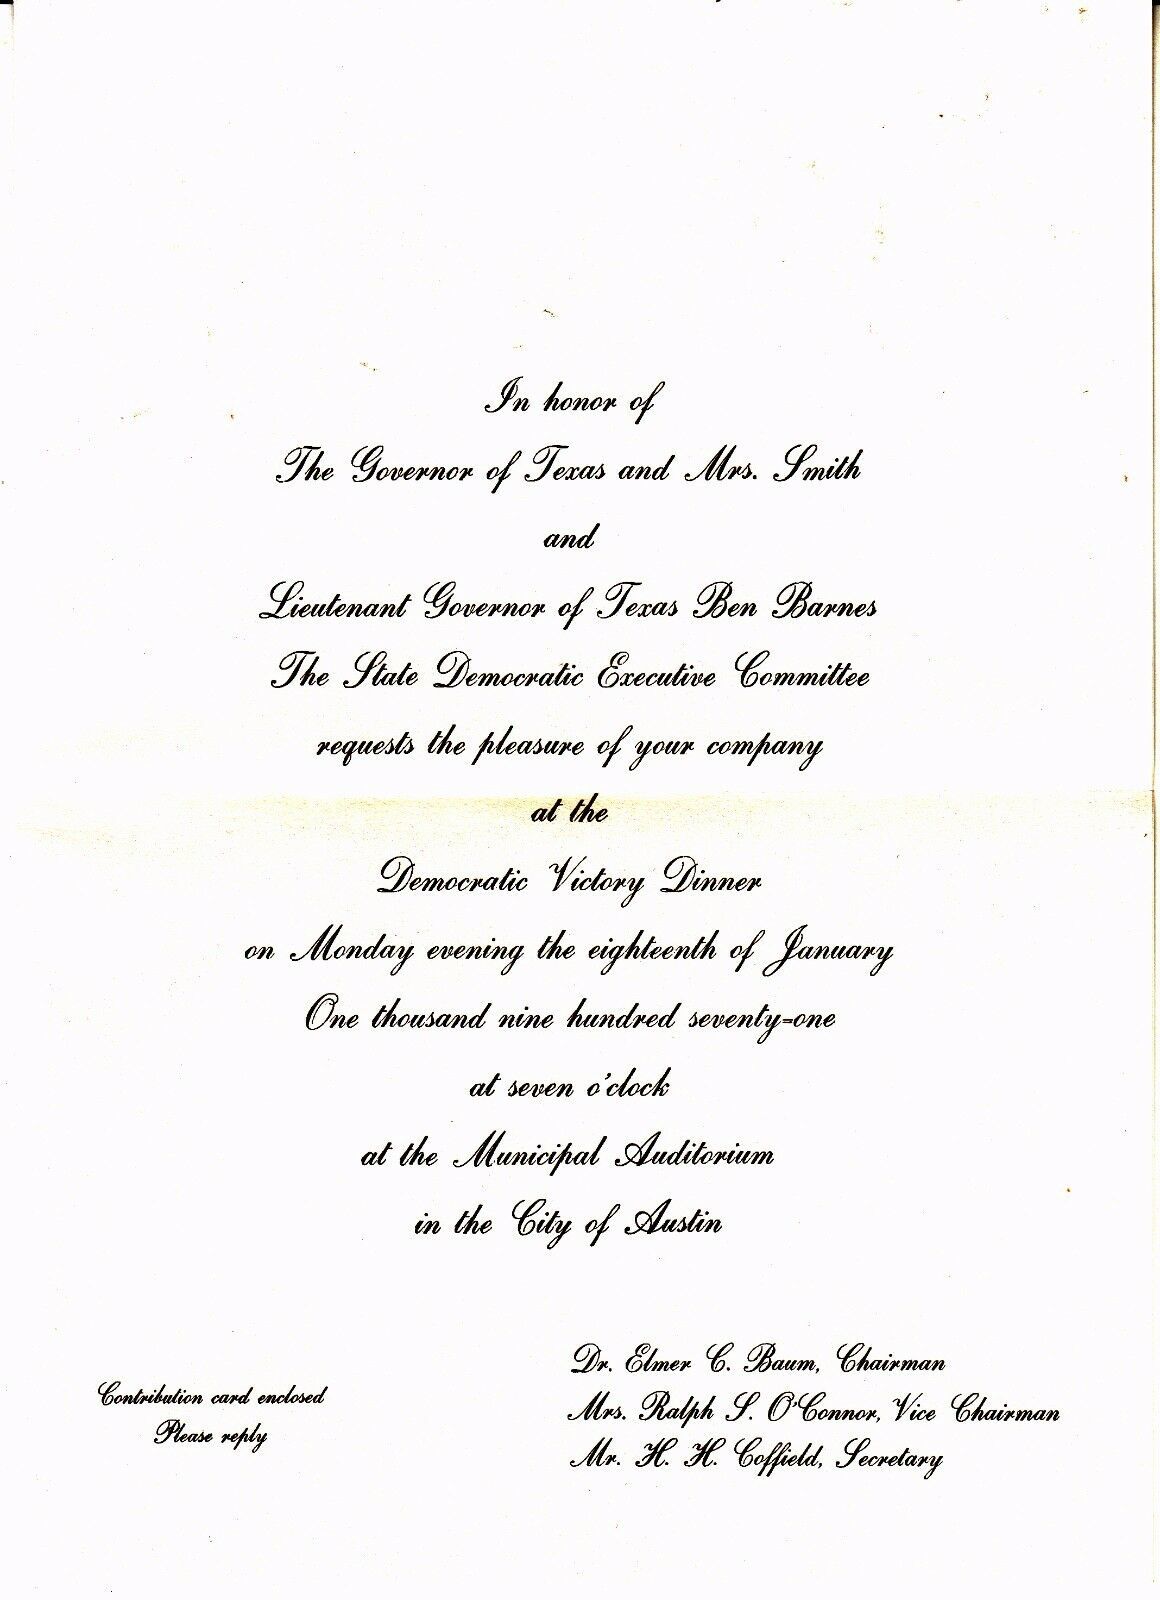 In honor of
The Governor of Texas and Mrs. Smith
and
Lieutenant Governor of Texas Ben Barnes
The State Democratic Executive Committee
requests the pleasure of your company
at the
Democratic Victory Dinner
on Monday evening the eighteenth of January
One thousand nine hundred seventy=one
at seven o'clock
at the Municipal Auditorium
in the City of Austin
Contribution card enclosed
Please reply
Dr. Elmer C. Baum, Chairman
Mrs. Ralph S. O'Connor, Vice Chairman
Mr. H. H. Coffield, Secretary